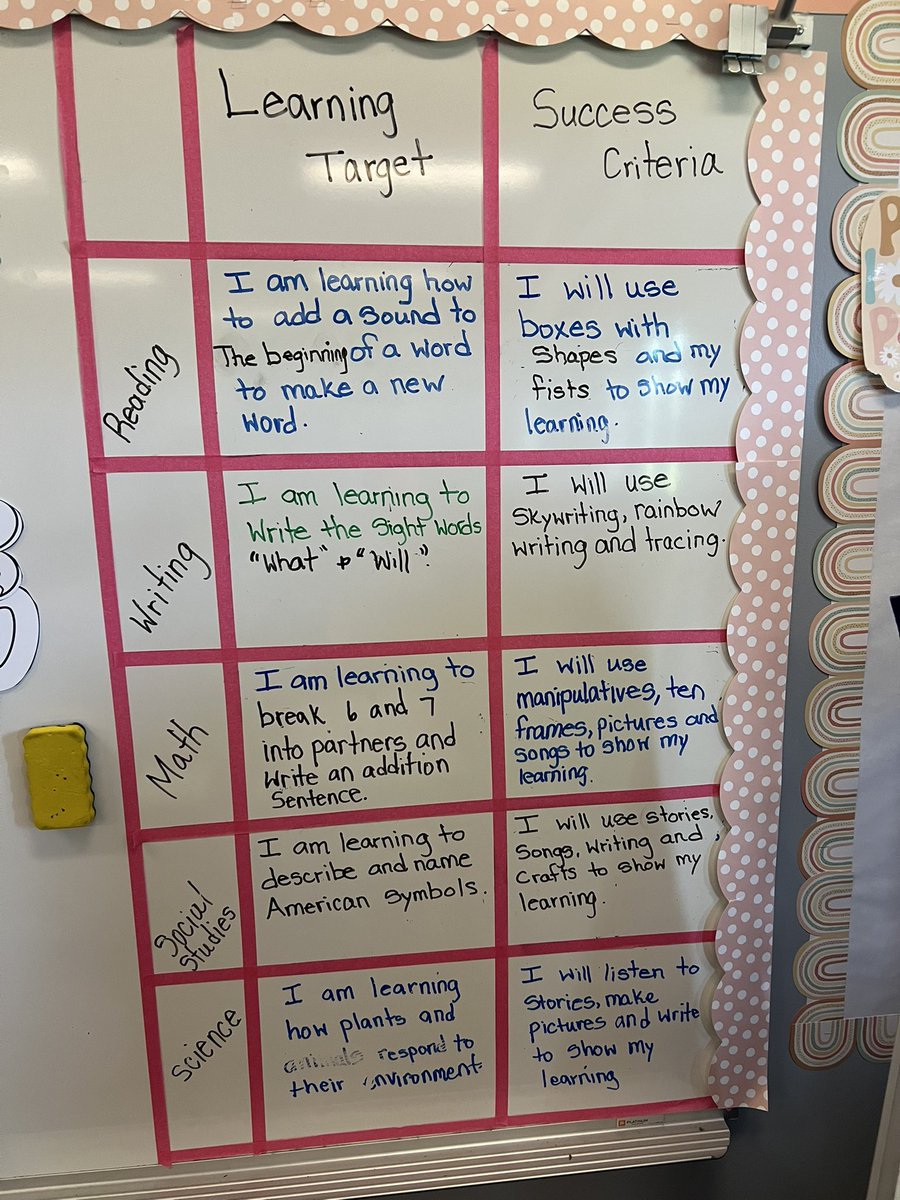 Learning
Target
Success
Criteria
Reading
I am learning how
to add a sound to
The beginning of a word
to make a new
word.
I will use
boxes with
Shapes and my
fists to show my
learning.
Writing
I am learning to
Write the Sight Words
"What" & "Will".
I will use
skywriting, rainbow
writing and tracing.
Math
I am learning to
break 6 and 7
into partners and
write an addition
Sentence.
I will use
manipulatives, ten
frames, pictures and
songs to show my
learning.
Social
Studies
I am learning to
describe and name
American Symbols.
I will use stories,
Songs, writing and
Crafts to show my
learning.
Science
I am learning
how plants and
animals respond to
their environment
I will listen to
Stories, make
pictures and write
to show my
learning